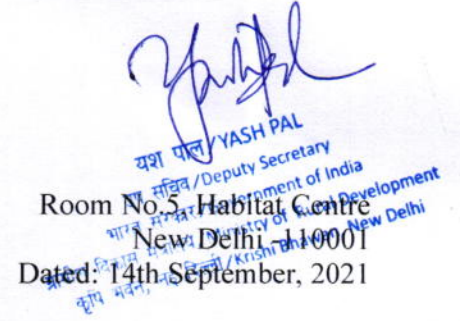 यश पाल/YASH PAL
उप सचिव/Deputy Secretary
भारत सरकार/Government of India
ग्रामीण विकास मंत्रालय/Ministry of Rural Development
कृषि भवन, नई दिल्ली/Krishi Bhawan, New Delhi
Room No.5, Habitat Centre
New Delhi -110001
Dated: 14th September, 2021